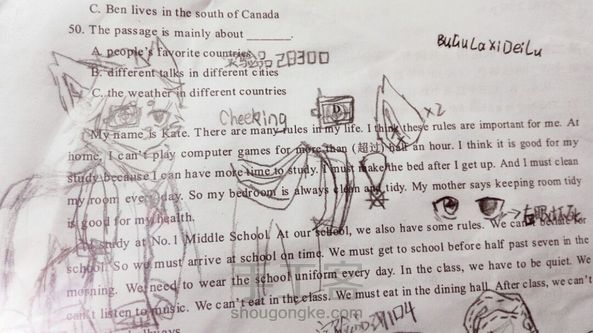 C. Ben lives in the south of Canada
50. The passage is mainly about ______.
BuGuLaXiDeiLu
A. people's favorite countries
品 2B300
B. different talks in different cities
C. the weather in different countries
Cheeking
×2
My name is Kate. There are many rules in my life. I think these rules are important for me. At
home, I can't play computer games for more than (超过) half an hour. I think it is good for my
study because I can have more time to study. I must make the bed after I get up. And I must clean
my room every day. So my bedroom is always clean and tidy. My mother says keeping room tidy
is good for my health.
I study at No.1 Middle School. At our school, we also have some rules. We can't be late for
school. So we must arrive at school on time. We must get to school before half past seven in the
morning. We need to wear the school uniform every day. In the class, we have to be quiet. We
can't listen to music. We can't eat in the class. We must eat in the dining hall. After class, we can't
shougongke.com
always